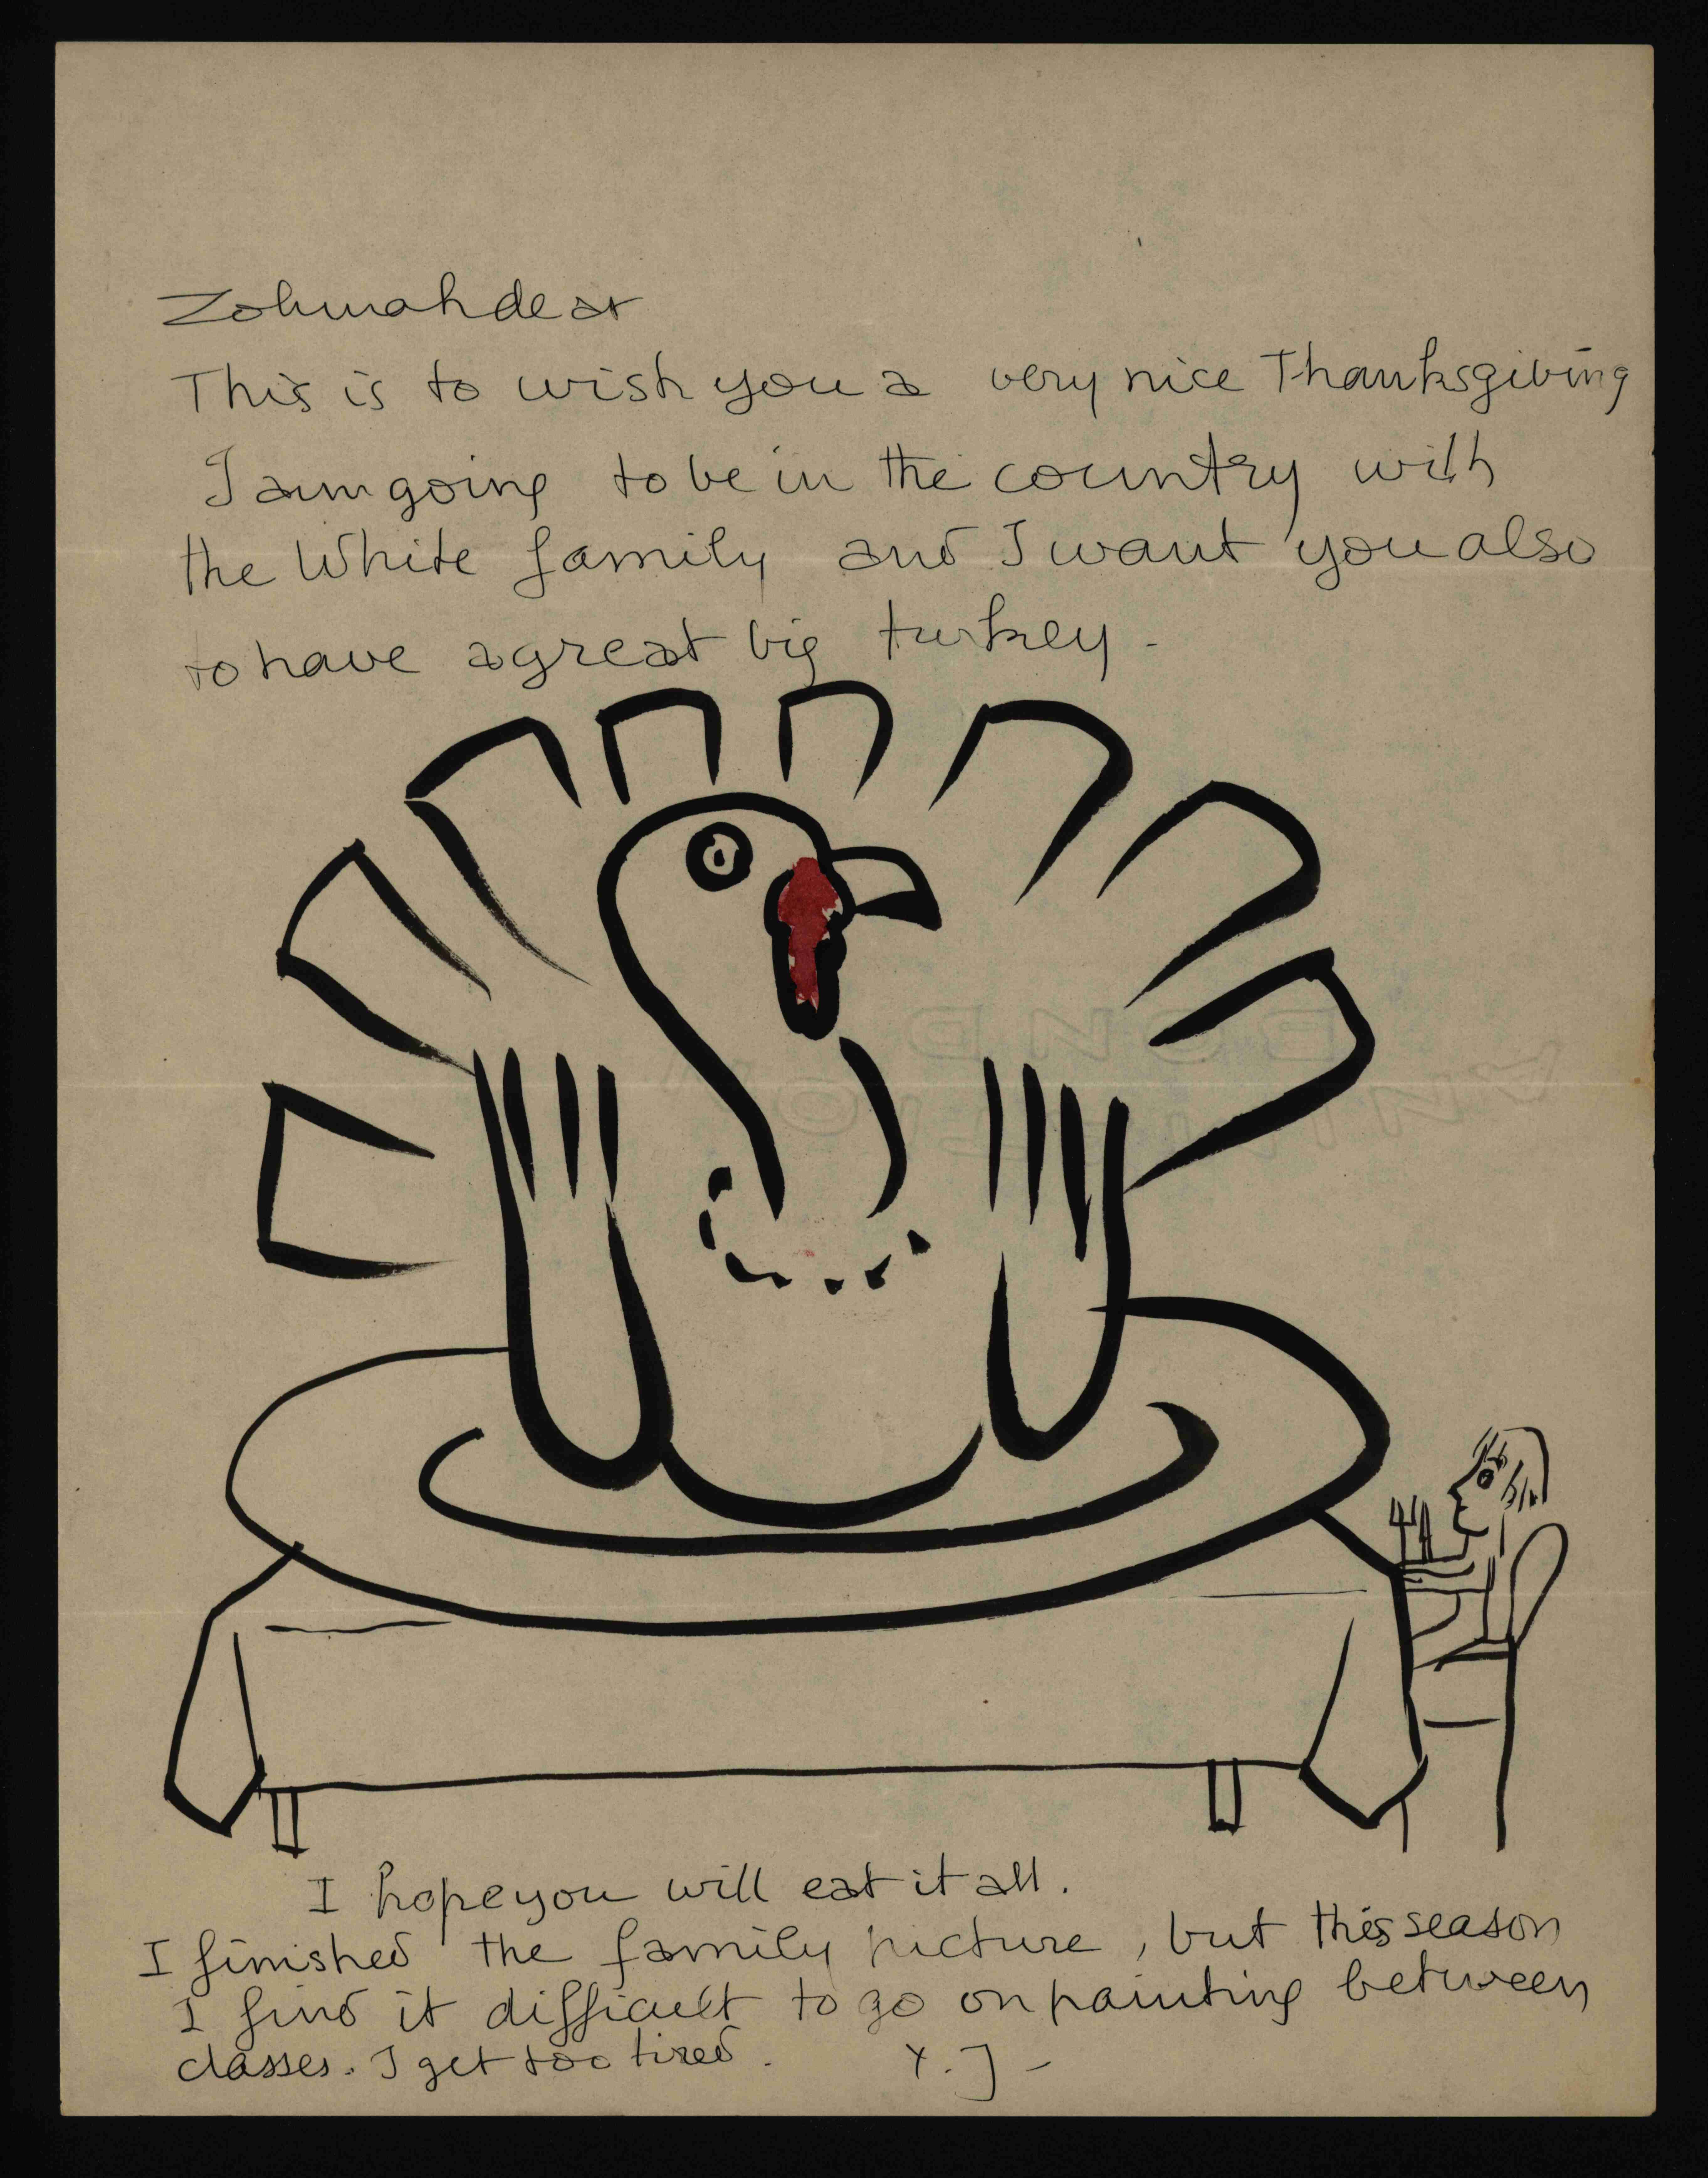 Zohmah dear
This is to wish you a very nice Thanksgiving
I am going to be in the country with
the White family and I want you also
to have a great big turkey -
I hope you will eat it all.
I finished the family picture, but this season
I find it difficult to go on painting between
classes. I get too tired. Y. J -
BOND